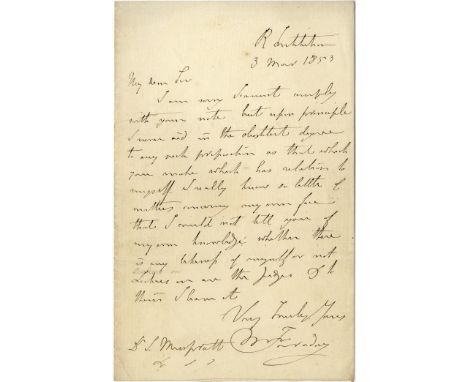 R Institution
3 Mar 1853
My dear Sir
I am sorry I cannot comply
with your note but upon principle
I never aid in the slightest degree
to any such proposition as that which
you make which has relation to
myself I really know so little of
matters concerning my own face
that I could not tell you of
my own knowledge whether there
is any likeness of myself or not
are the judges & to
them I leave it
Very Truly Yours
M Faraday
Dr S. Muspratt